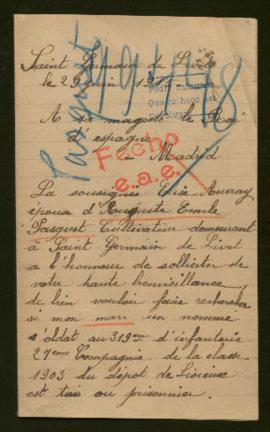 Saint Germain de Livet
le 29 Juin 191
A sa magesté le Roi
d'espagne
Madrid
Fecho
e.a.e.
Pasquet
49448
La soussignée Auvray
épouse d'Auguste Emile
Pasquet Cultivateur demeurant
à Saint Germain de Livet
a l'honneur de solliciter de
votre haute bienveillance
de bien vouloir faire rechercher
si mon mari un nommé
s'oldat au 319em d'infanterie
27eme Compagnie de la classe
1903 du dépot de Lisieux
est tué ou prisonnier.